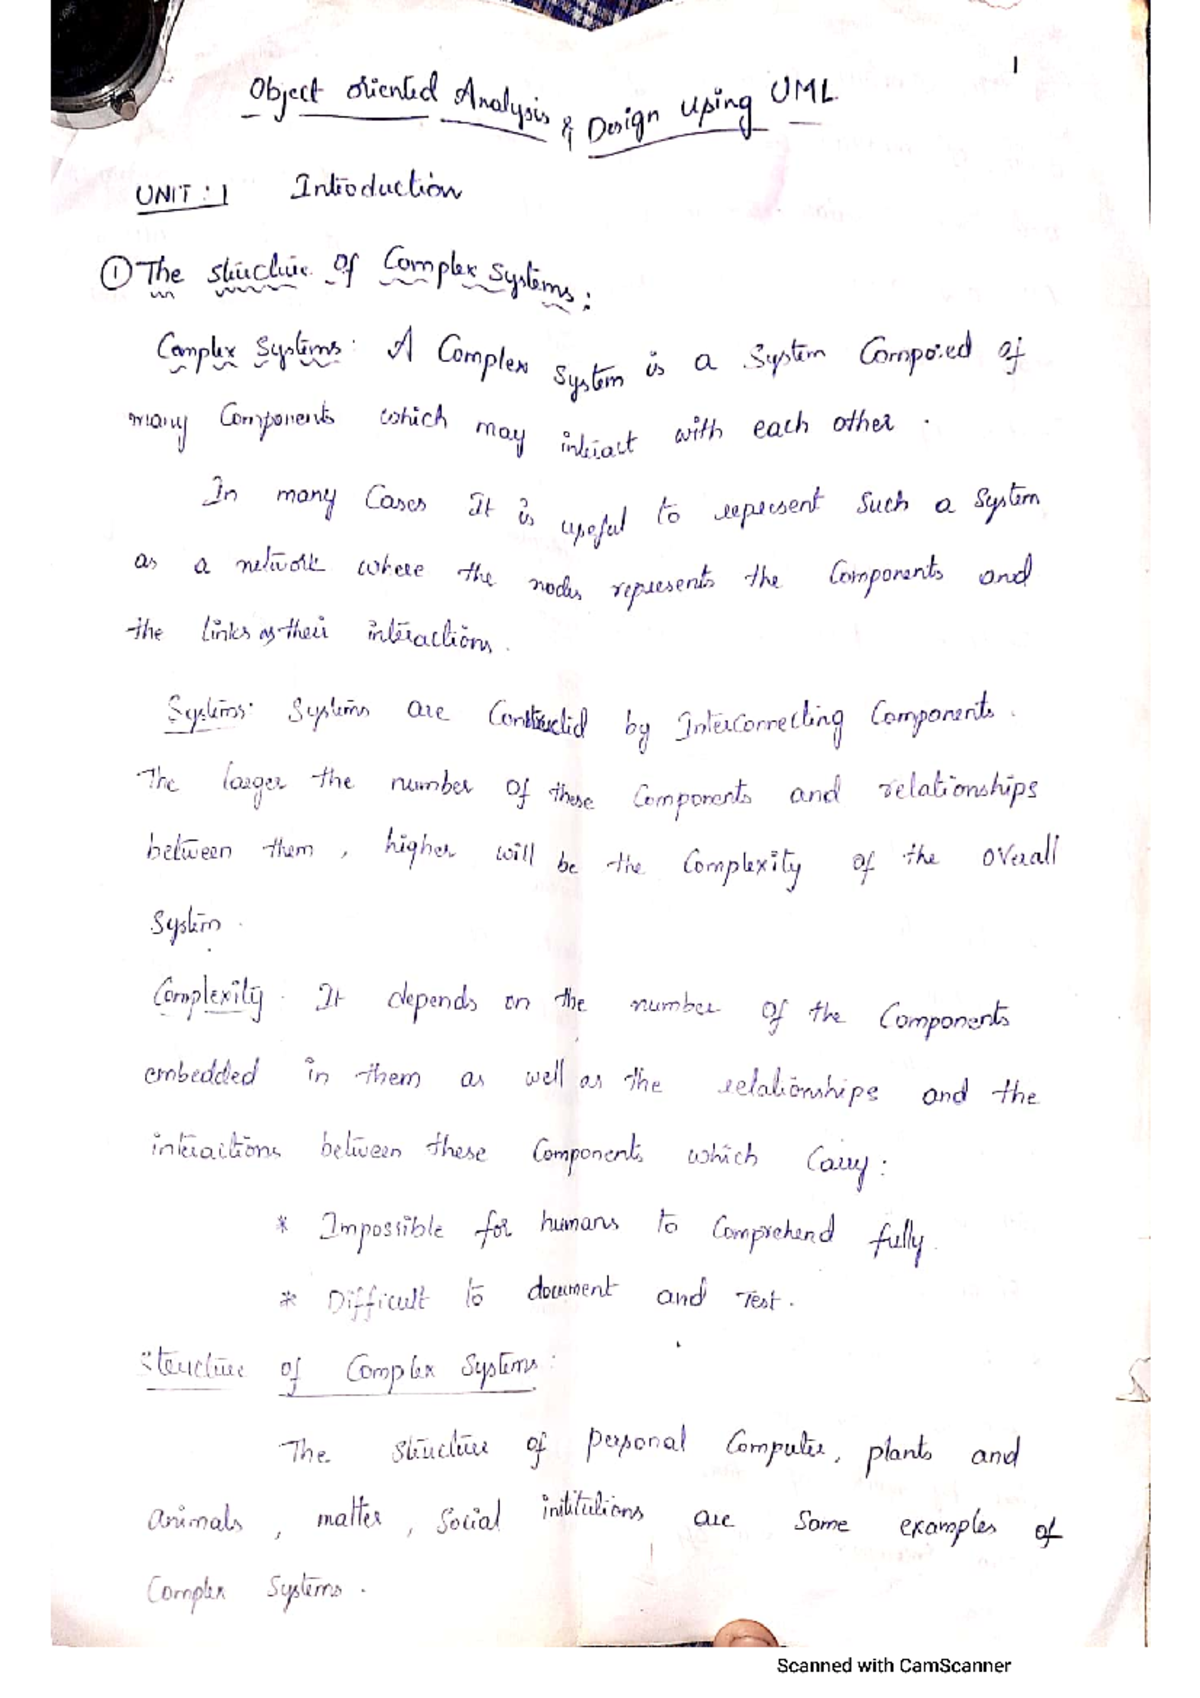 1
Object oriented Analysis & Design Using UML
UNIT : 1 Introduction
① The structure of Complex Systems :
Complex Systems : A Complex System is a System Composed of
many Components which may interact with each other .
In many Cases It is useful to represent Such a System
as a network where the nodes represents the Components and
the Links as their interactions .
Systems : Systems are Constructed by Interconnecting Components .
The larger the number of these Components and relationships
between them , higher will be the Complexity of the overall
System .
Complexity : It depends on the number of the Components
embedded in them as well as the relationships and the
interactions between these Components which Carry :
* Impossible for humans to Comprehend fully .
* Difficult to document and Test .
Structure of Complex Systems :
The Structure of personal Computer , plants and
animals , matter , Social institutions are Some examples of
Complex Systems .
Scanned with CamScanner